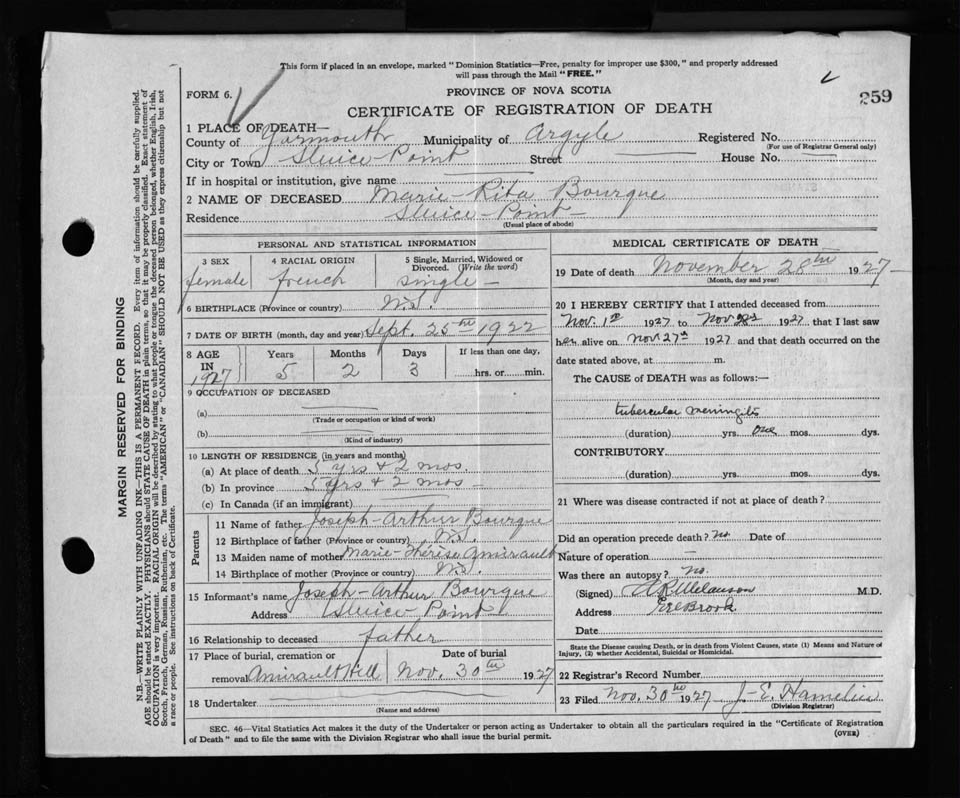 This form if placed in an envelope, marked "Dominion Statistics—Free, penalty for improper use $300," and properly addressed
will pass through the Mail "FREE."
FORM 6.
PROVINCE OF NOVA SCOTIA
259
CERTIFICATE OF REGISTRATION OF DEATH
1 PLACE OF DEATH—
County of Yarmouth Municipality of Argyle Registered No.
(For use of Registrar General only)
City or Town Sluice Point Street House No.
If in hospital or institution, give name
2 NAME OF DECEASED Marie-Rita Bourque
Residence Sluice-Point-
(Usual place of abode)
PERSONAL AND STATISTICAL INFORMATION
3 SEX 4 RACIAL ORIGIN 5 Single, Married, Widowed or Divorced. (Write the word)
female french single-
6 BIRTHPLACE (Province or country) N.S.
7 DATE OF BIRTH (month, day and year) Sept. 25th 1922
8 AGE IN 1927 Years Months Days If less than one day,
5 2 3 hrs. or min.
9 OCCUPATION OF DECEASED
(a)
(Trade or occupation or kind of work)
(b)
(Kind of industry)
10 LENGTH OF RESIDENCE (in years and months)
(a) At place of death 5 yrs & 2 mos.
(b) In province 5 yrs & 2 mos-
(c) In Canada (if an immigrant)
Parents
11 Name of father Joseph-Arthur Bourque
12 Birthplace of father (Province or country) N.S.
13 Maiden name of mother Marie-Thérèse Amirault
14 Birthplace of mother (Province or country) N.S.
15 Informant's name Joseph-Arthur Bourque
Address Sluice Point
16 Relationship to deceased father
17 Place of burial, cremation or removal Amirault Hill Date of burial Nov. 30th 1927
18 Undertaker
(Name and address)
MEDICAL CERTIFICATE OF DEATH
19 Date of death November 28th 1927-
(Month, day and year)
20 I HEREBY CERTIFY that I attended deceased from
Nov. 1st 1927 to Nov 1927 that I last saw
her alive on Nov 27th 1927 and that death occurred on the
date stated above, at m.
The CAUSE of DEATH was as follows:—
tubercular meningitis
(duration) yrs. one mos. dys.
CONTRIBUTORY
(duration) yrs. mos. dys.
21 Where was disease contracted if not at place of death?
Did an operation precede death? no Date of
Nature of operation —
Was there an autopsy? no.
(Signed) Melanson M.D.
Address Eel Brook
Date
State the Disease causing Death, or in death from Violent Causes, state (1) Means and Nature of
Injury, (2) whether Accidental, Suicidal or Homicidal.
22 Registrar's Record Number
23 Filed Nov. 30th 1927 J-E. Hamelin
(Division Registrar)
SEC. 46—Vital Statistics Act makes it the duty of the Undertaker or person acting as Undertaker to obtain all the particulars required in the "Certificate of Registration
of Death" and to file the same with the Division Registrar who shall issue the burial permit.
(OVER)
MARGIN RESERVED FOR BINDING
N.B.—WRITE PLAINLY WITH UNFADING INK—THIS IS A PERMANENT RECORD. Every item of information should be carefully supplied.
AGE should be stated EXACTLY. PHYSICIANS should STATE CAUSE OF DEATH in plain terms, so that it may be properly classified. Exact statement of
OCCUPATION is very important. RACIAL ORIGIN will be described by stating to what people or tongue the deceased person belonged, whether English, Irish,
Scotch, French, German, Russian, Ruthenian, etc. The terms "AMERICAN" or "CANADIAN" SHOULD NOT BE USED as they express citizenship but not
a race or people. See instructions on back of Certificate.